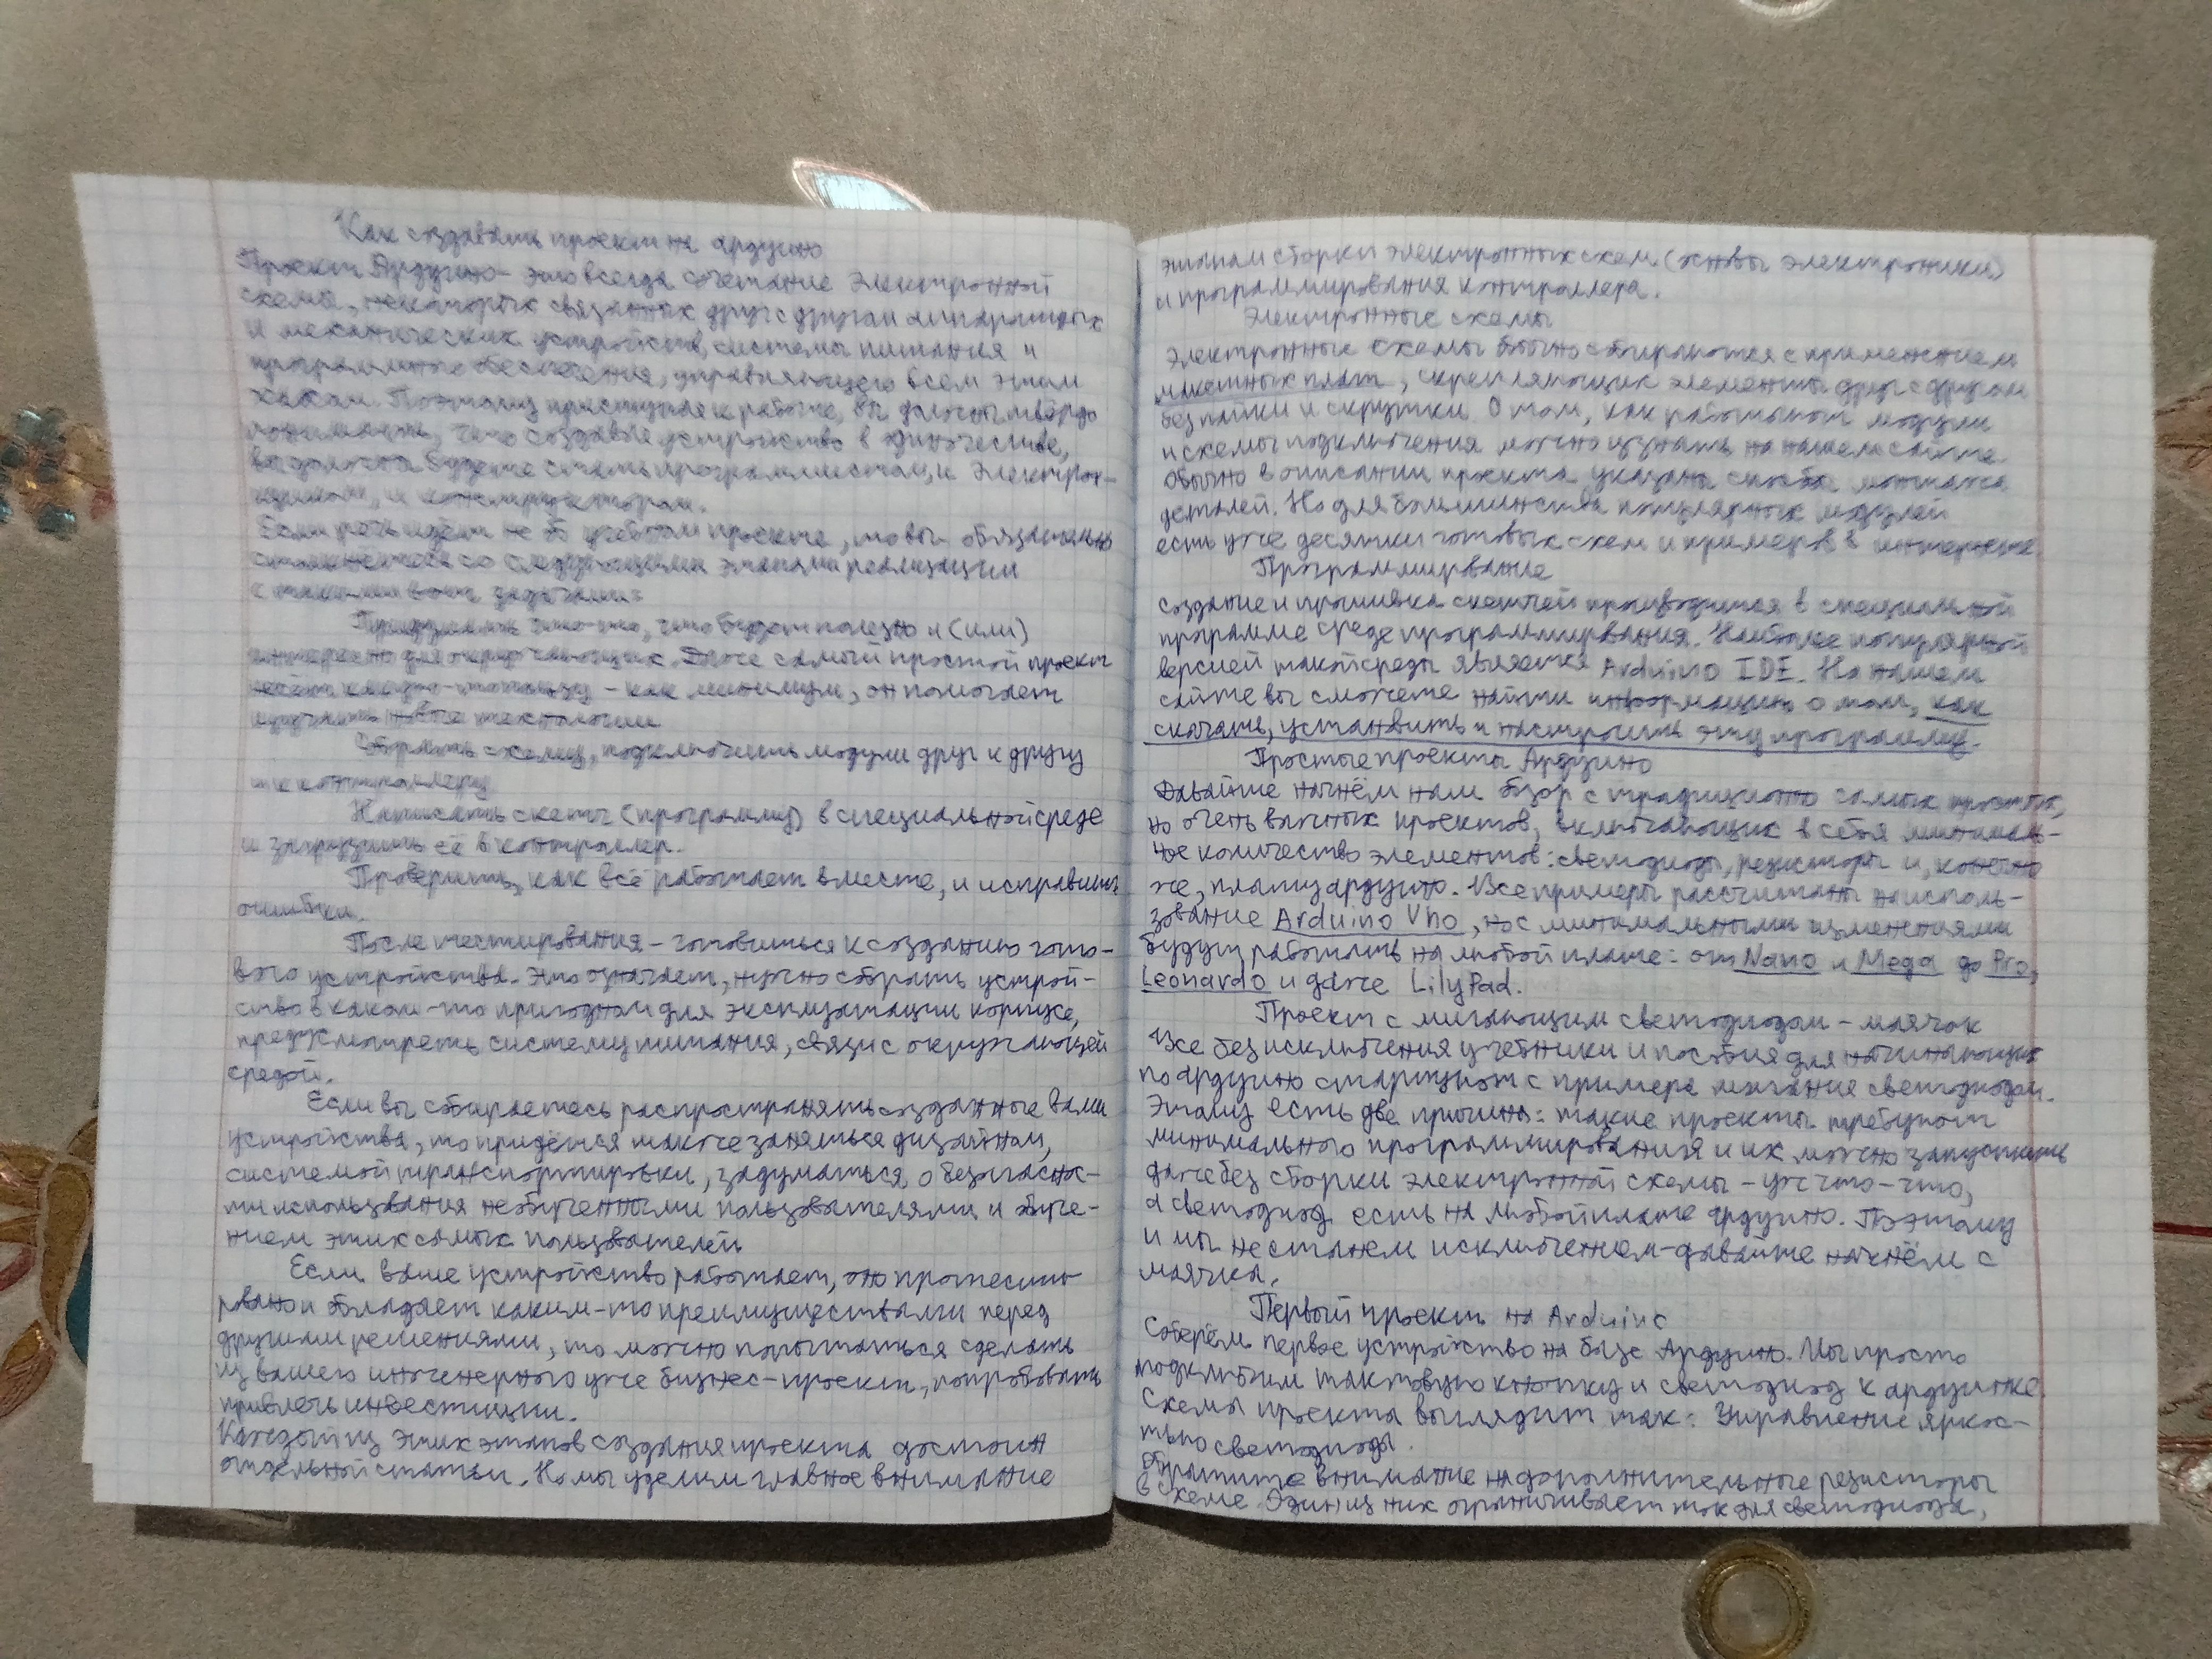 Как создавать проект на ардуино
Проект Ардуино - это всегда сочетание электронной
схемы, некоторых связанных друг с другом аппаратных
и механических устройств, системы питания и
программного обеспечения, управляющего всем этим
хаосом. Поэтому приступая к работе, вы должны твёрдо
понимать, что создавая устройство в одиночестве,
вы должны будете стать программистом, и электрон-
щиком, и конструктором.
Если речь идёт не об учебном проекте, то вы обязательно
столкнётесь со следующими этапами реализации
с такими вот задачами:
Придумать что-то, что будет полезно и (или)
интересно для окружающих. Даже самый простой проект
несёт какую-то пользу - как минимум, он помогает
изучать новые технологии
Собрать схему, подключить модули друг к другу
и к контроллеру
Написать скетч (программу) в специальной среде
и загрузить её в контроллер.
Проверить, как всё работает вместе, и исправить
ошибки.
После тестирования - готовиться к созданию гото-
вого устройства. Это означает, нужно собрать устрой-
ство в каком-то пригодном для эксплуатации корпусе,
предусмотреть систему питания, связи с окружающей
средой.
Если вы собираетесь распространять созданные вами
устройства, то придётся также заняться дизайном,
системой транспортировки, задуматься о безопаснос-
ти использования необученными пользователями и обуче-
нием этих самых пользователей
Если ваше устройство работает, оно протестиро-
вано и обладает каким-то преимуществами перед
другими решениями, то можно попытаться сделать
из вашего инженерного уже бизнес-проект, попробовать
привлечь инвестиции.
Каждый из этих этапов создания проекта достоин
отдельной статьи. Но мы уделим главное внимание
этапам сборки электронных схем (основы электроники)
и программирования контроллера.
Электронные схемы
Электронные схемы обычно собираются с применением
макетных плат, скрепляющих элементы друг с другом
без пайки и скрутки. О том, как работают модули
и схемы подключения можно узнать на нашем сайте.
Обычно в описании проекта указаны способы монтажа
деталей. Но для большинства популярных модулей
есть уже десятки готовых схем и примеров в интернете
Программирование
создание и прошивка скетчей производится в специальной
программе среде программирования. Наиболее популярной
версией такой среды является Arduino IDE. На нашем
сайте вы сможете найти информацию о том, как
скачать, установить и настроить эту программу.
Простые проекты Ардуино
Давайте начнём наш обзор с традиционно самых простых,
но очень важных проектов, включающих в себя минималь-
ное количество элементов: светодиоды, резисторы и, конечно
же, плату ардуино. Все примеры рассчитаны на исполь-
зование Arduino Uno, но с минимальными изменениями
будут работать на любой плате: от Nano и Mega до Pro,
Leonardo и даже LilyPad.
Проект с мигающим светодиодом - маячок
Все без исключения учебники и пособия для начинающих
по ардуино стартуют с примера мигания светодиодом.
Этому есть две причины: такие проекты требуют
минимального программирования и их можно запустить
даже без сборки электронной схемы - уж что-что,
а светодиод есть на любой плате ардуино. Поэтому
и мы не станем исключением - давайте начнём с
маячка.
Первый проект на Arduino
Соберём первое устройство на базе Ардуино. Мы просто
подключим тактовую кнопку и светодиод к ардуинке.
Схемы проекта выглядит так: Управление яркос-
тью светодиода.
Обратите внимание на дополнительные резисторы
в схеме. Один из них ограничивает ток для светодиода,